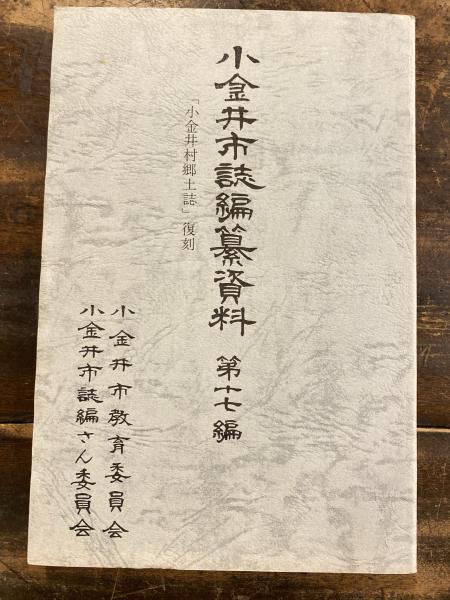 小金井市誌編纂資料　第十七編
「小金井村郷土誌」復刻
小金井市教育委員会
小金井市誌編さん委員会